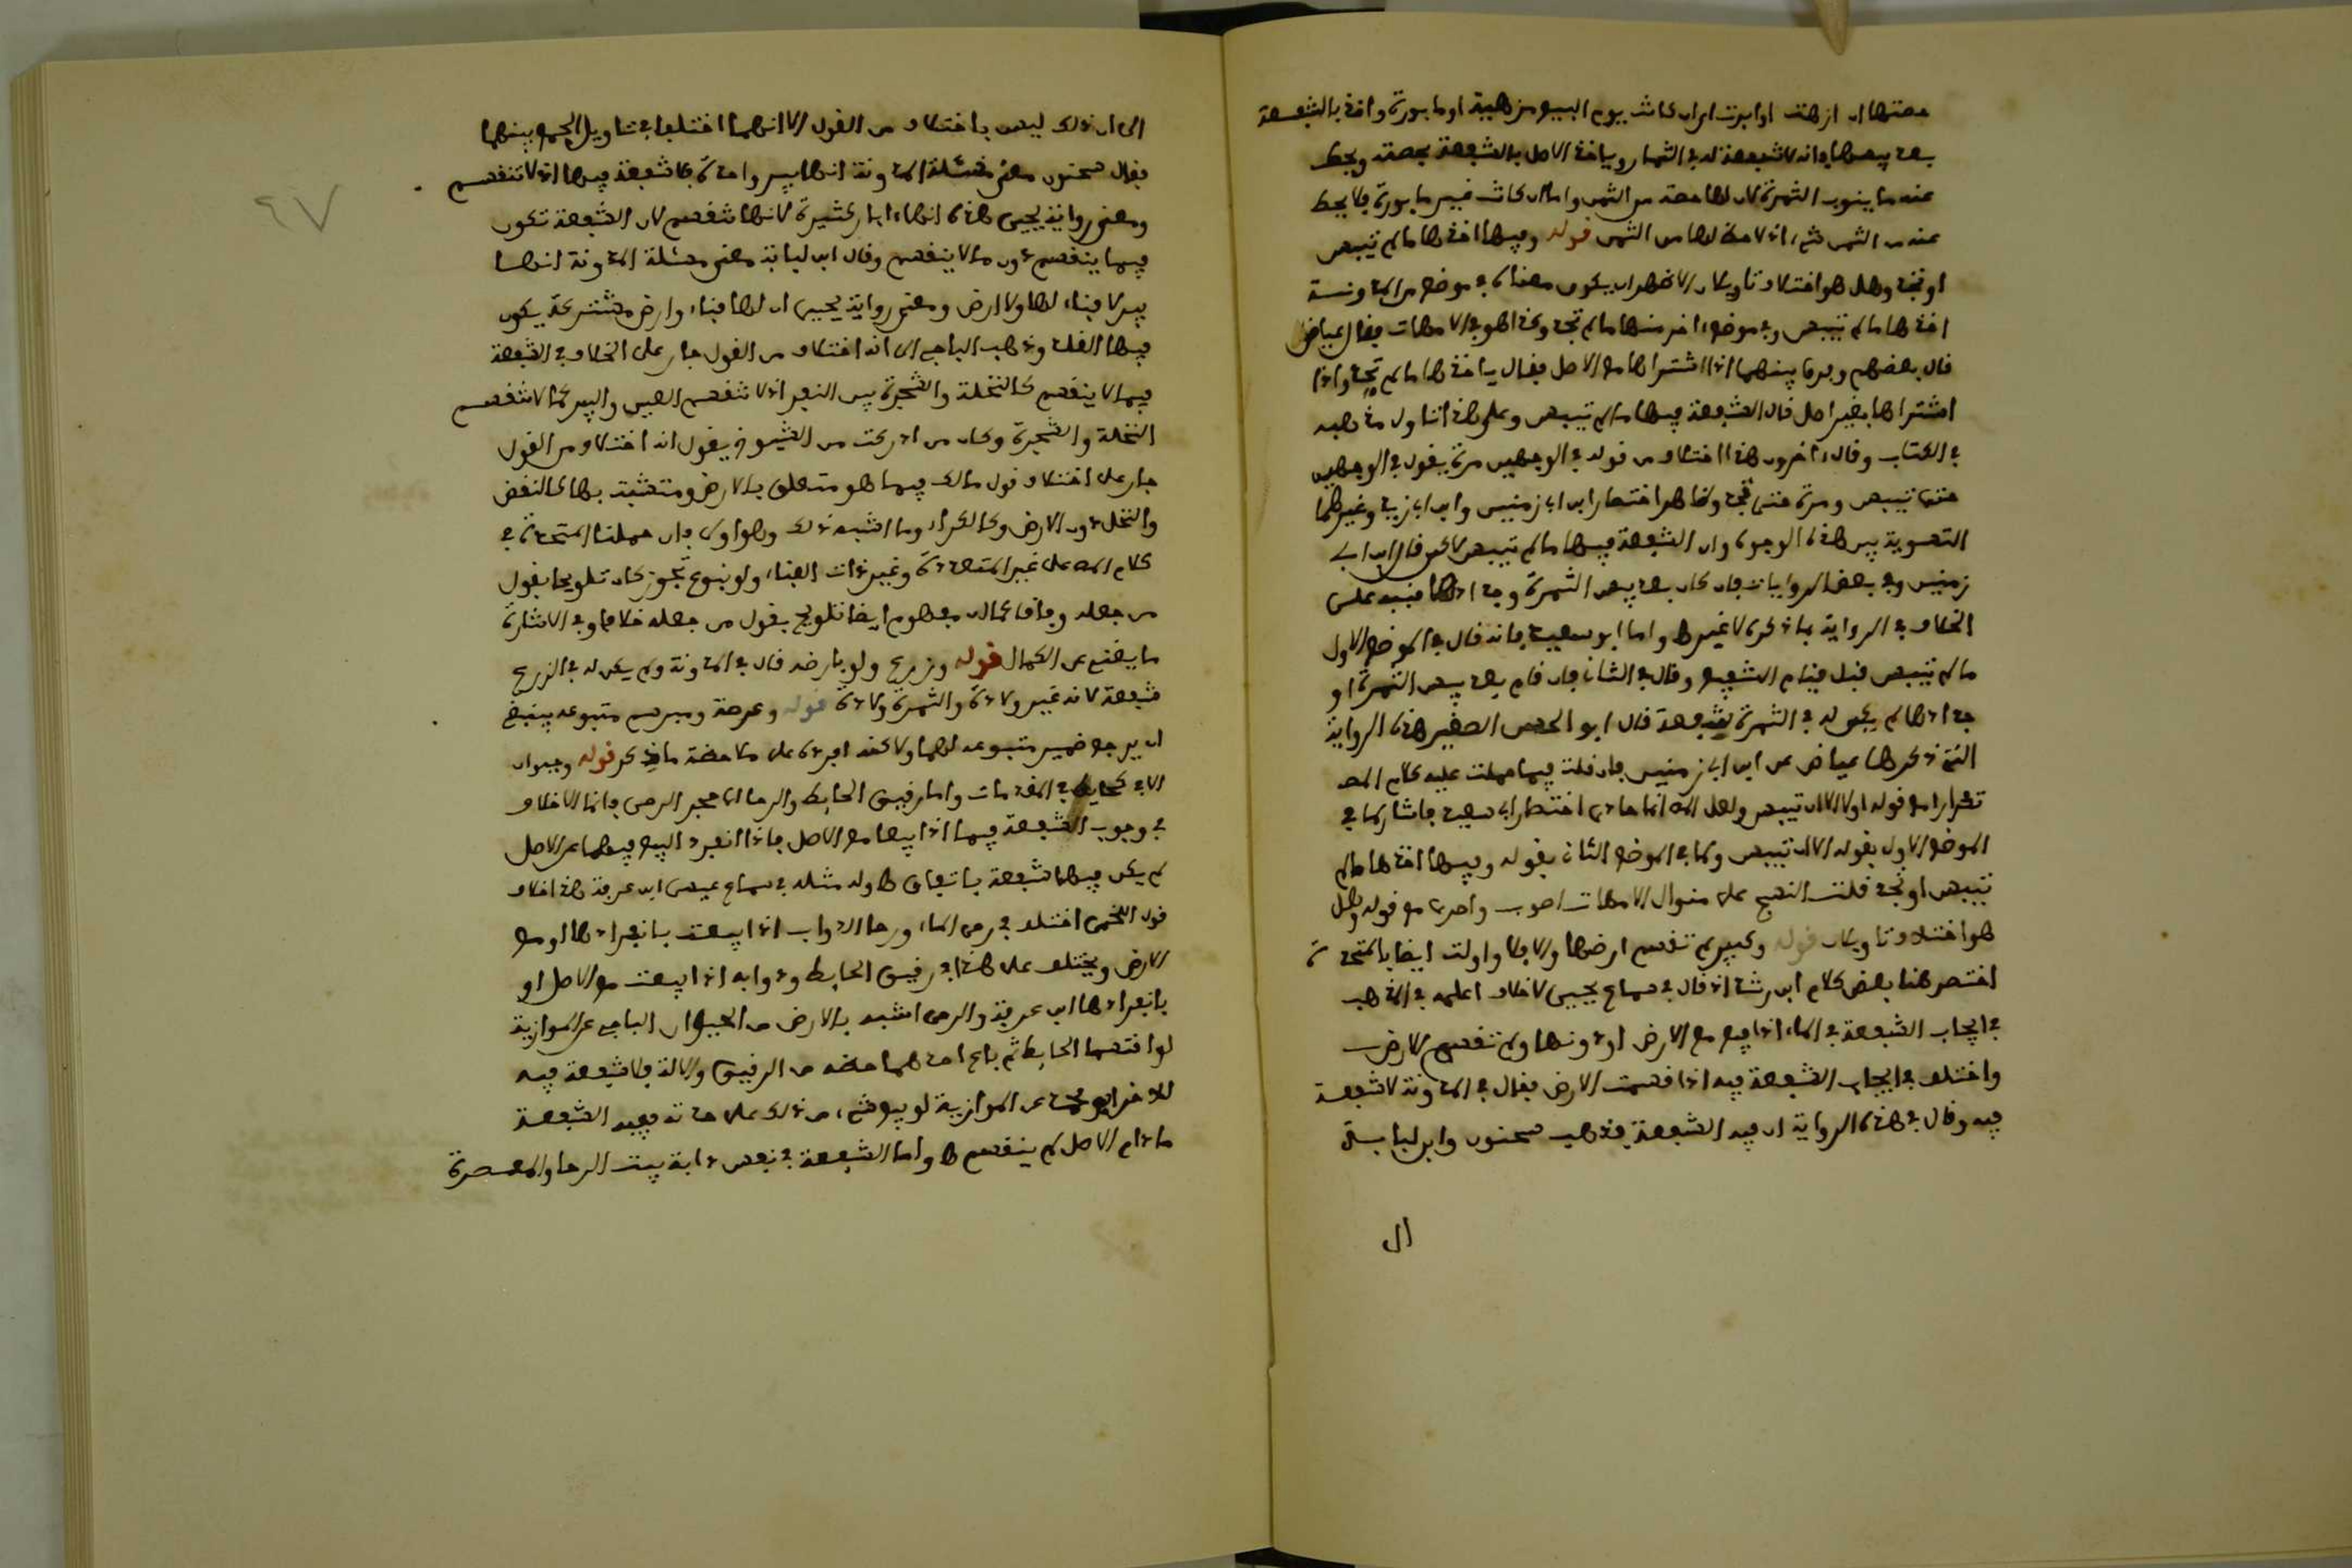 حصتها ان ازهت او ابرت اى ان كانت يوم البيع مزهية او مابورة واخذ بالشفعة
بعد يبسها فانه لا شفعة له في الثمار وياخذ الاصل بالشفعة بحصته ويحط
عنه ما ينوب الثمرة لان لها حصة من الثمن واما ان كانت غير مابورة فلا يحط
عنه من الثمن شيء اذ لا حصة لها من الثمن قوله وفيها اخذها ما لم تيبس
او تجذ وهل هو اختلاف تاويلان الاظهر ان يكون معناه في موضع من المدونة
اخذها ما لم تيبس وفي موضع اخر منها ما لم تجذ وكذا هو في الامهات فقال عياض
قال بعضهم وفرق بينهما اذا اشتراها مع الاصل فقال ياخذها ما لم تجذ واذا
اشتراها بغير اصل قال الشفعة فيها ما لم تيبس وعلى هذا تاول مذهبه
في الكتاب وقال اخرون هذا اختلاف من قوله في الوجهين مرة يقول في الوجهين
حتى تيبس ومرة حتى تجذ وظاهر اختصار ابن ابي زمنين وابن ابي زيد وغيرهما
التسوية بين هذه الوجوه وان الشفعة فيها ما لم تيبس لاكن قال ابن ابي
زمنين وفي بعض الروايات فان كان بعد يبس الثمرة وجدادها فنبه على
الخلاف في الرواية بما ذكره لا غير ط واما ابو سعيد فانه قال في الموضع الاول
ما لم تيبس قبل قيام الشفيع وقال في الثاني فان قام بعد يبس الثمرة او
جدادها لم يكن له في الثمرة شفعة قال ابو الحسن الصغير هذه الرواية
التي ذكرها عياض عن ابن ابي زمنين فان قلت فيما حملت عليه كلام المص
تكرارا مع قوله اولا الا ان تيبس ولعل المص انما حاذى اختصار ابي سعيد فاشار لما في
الموضع الاول بقوله الا ان تيبس ولما في الموضع الثاني بقوله وفيها اخذها ما لم
تيبس او تجذ قلت النسج على منوال الامهات اصوب واحرى مع قوله وهل
هو اختلاف تاويلان قوله وكبير لم تقسم ارضها والا فلا واولت ايضا بالمتحدة
اختصر هنا بعض كلام ابن رشد اذ قال في سماع يحيى لا خلاف اعلمه في المذهب
في ايجاب الشفعة في الماء اذا بيع مع الارض او دونها ولم تقسم الارض
واختلف في ايجاب الشفعة فيه اذا قسمت الارض فقال في المدونة لا شفعة
فيه وقال في هذه الرواية ان فيه الشفعة فذهب سحنون وابن لبابة
الى
٦٧
الى ان ذلك ليس باختلاف من القول الا انهما اختلفا في تاويل الجمع بينهما
فقال سحنون معنى مسئلة المدونة انها بير واحدة فلا شفعة فيها اذ لا تنقسم
ومعنى رواية يحيى هذه انها ابار كثيرة لانها تنقسم لان الشفعة تكون
فيما ينقسم دون ما لا ينقسم وقال ابن لبابة معنى مسئلة المدونة انها
بير لا فناء لها ولا ارض ومعنى رواية يحيى ان لها فناء وارض مشتركة يكون
فيها القلد وذهب الباجي الى انه اختلاف من القول جار على الخلاف في الشفعة
فيما لا ينقسم كالنخلة والشجرة بين النفر اذ لا تنقسم العين والبير كما لا تنقسم
النخلة والشجرة وكان من ادركت من الشيوخ يقول انه اختلاف من القول
جار على اختلاف قول مالك فيما هو متعلق بالارض ومتشبث بها كالنقض
والنخل دون الارض وكالكراء وما اشبه ذلك وهو اولى فان حملنا المتحدة في
كلام المص على غير المتعددة وغير ذات الفناء ولو بنوع تجوز كان تلويحا بقول
من جعله وفاقا كما ان مفهوم ايضا تلويح بقول من جعله خلافا وفي الاشارة
ما يقنع عن الكمال قوله وزرع ولو بارضه قال في المدونة ولم يكن له في الزرع
شفعة لانه غير ولادة والثمرة ولادة قوله وعرصة وممر قسم متبوعه ينبغي
ان يرجع ضمير متبوعه لهما ولاكنه افرده على ملاحظة ما ذكر قوله وحيوان
الا في كحايط في المقدمات واما رقيق الحايط والرحا اما حجر الرحى فانما الاختلاف
في وجوب الشفعة فيها اذا بيعا مع الاصل فاذا انفرد البيع فيهما عن الاصل
لم يكن فيهما شفعة باتفاق ط وله مثله في سماع عيسى ابن عرفة هذا خلاف
قول اللخمي اختلف في رحى الماء ورحا الدواب اذا بيعت بانفرادها او مع
الارض ويختلف على هذا في رقيق الحايط ودوابه اذا بيعت مع الاصل او
بانفرادها ابن عرفة والرحى اشبه بالارض من الحيوان الباجي عن الموازية
لو اقتسما الحايط ثم باع احدهما حظه من الرقيق والالة فلا شفعة فيه
للاخر ابو محمد عن الموازية لو بيع شيء من ذلك على حدته ففيه الشفعة
ما دام الاصل لم ينقسم ط واما الشفعة في نفس دابة بيت الرحا والمعصرة